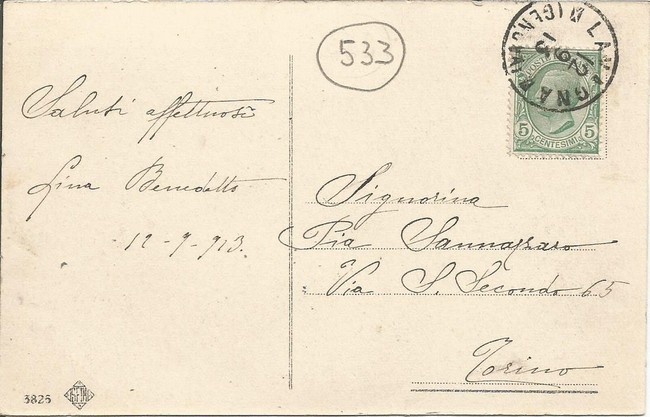 533
LAVAGNA RIVA (GENOVA)
POSTE
5 5
CENTESIMI
Saluti affettuosi
Lina Benedetto
12-9-913.
Signorina
Pia Sannazzaro
Via S. Secondo 65
Torino
3825